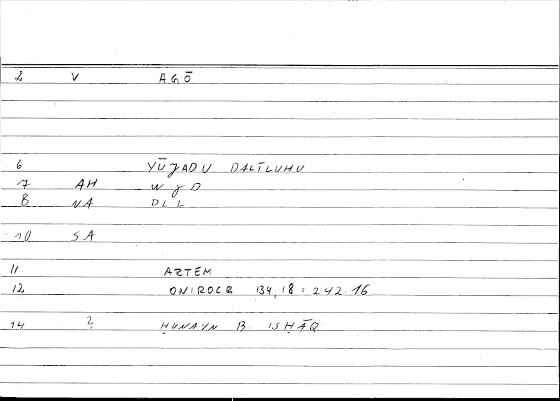 2 V AGŌ
6 YŪǦADU DALĪLUHU
7 AH WǦD
8 NA DLL
10 SA
11 ARTEM
12 ONIROCR 134,18 = 242.16
14 2 ḤUNAYN B. ISḤĀQ